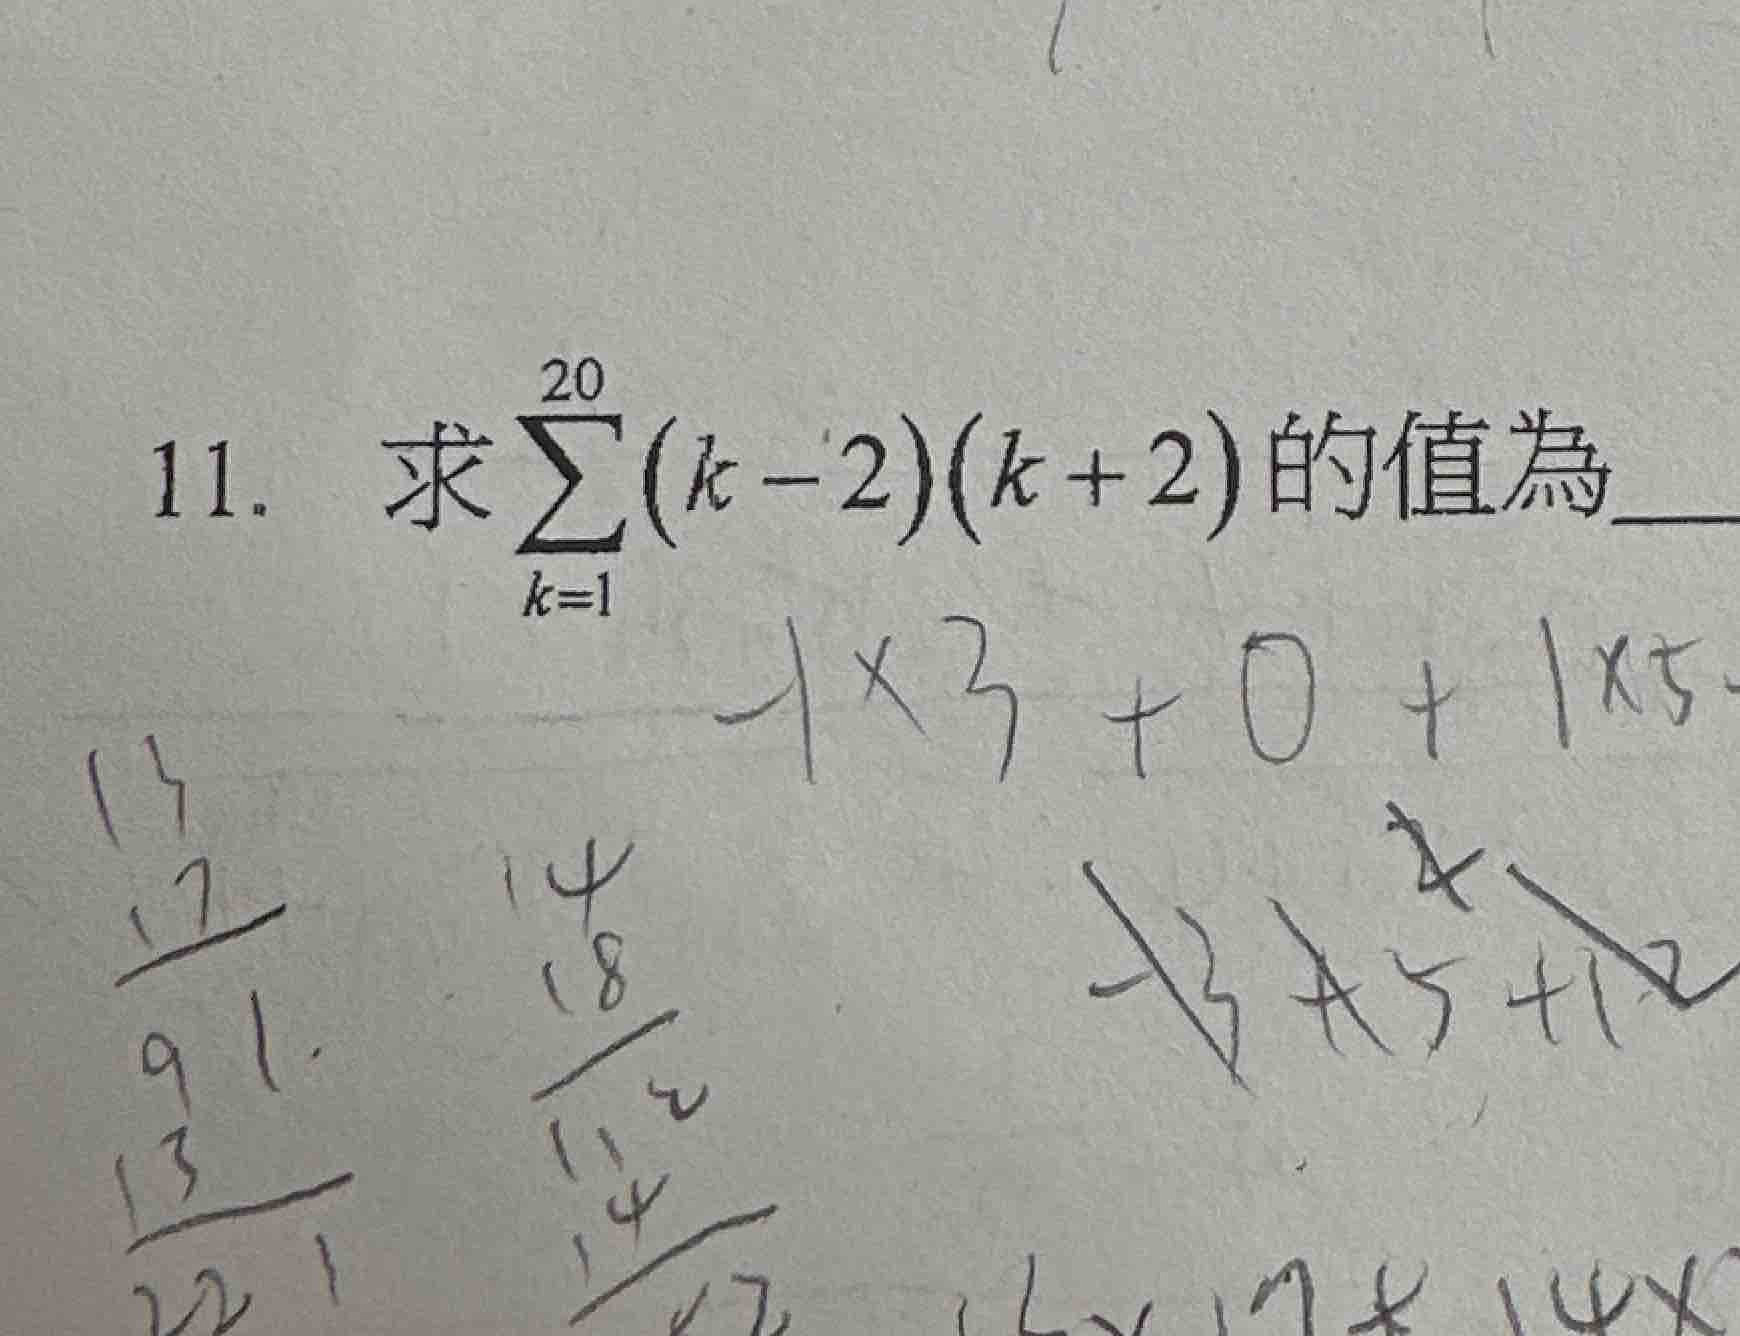 11. 求 20∑k=1 (k−2)(k+2) 的值為
-1×3 + 0 + 1×5
13
17
91
13
221
14
18
112
14
-3+5+12
17+14×